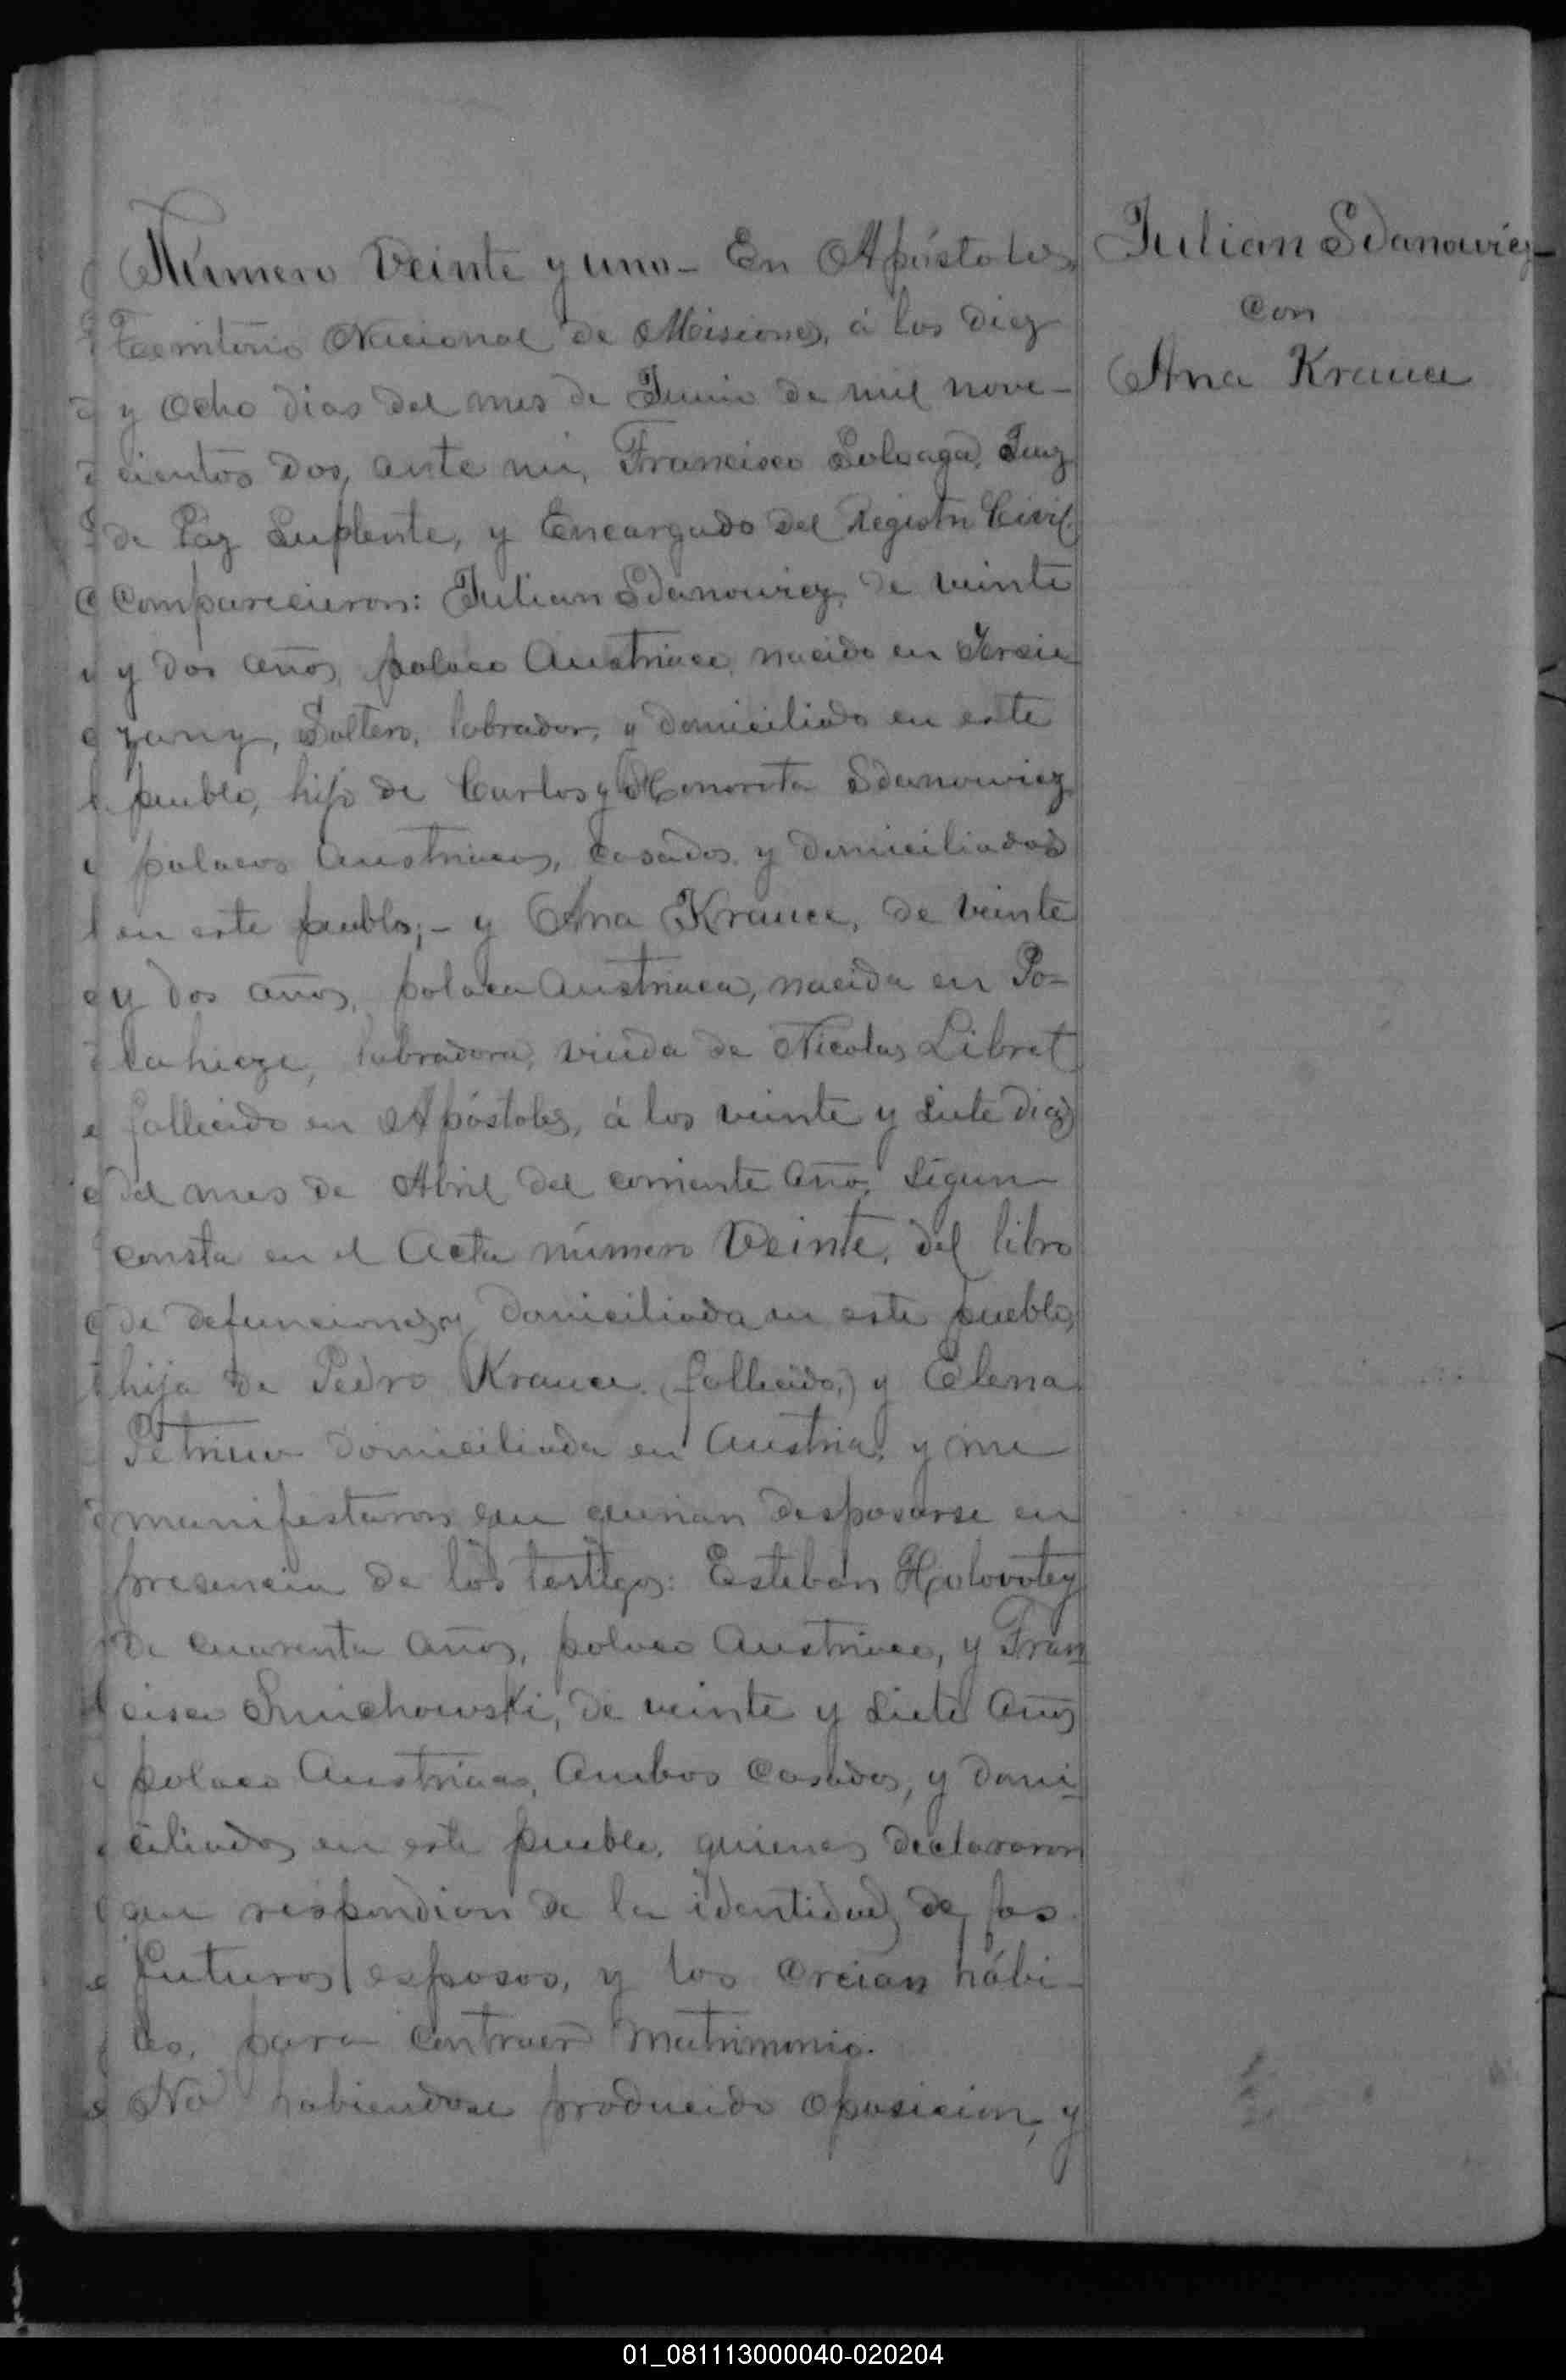 Número Veinte y uno - En Apóstoles,
Territorio Nacional de Misiones, á los diez
y ocho dias del mes de Junio de mil nove-
cientos dos, ante mi, Francisco Soloaga, Juez
de Paz Suplente, y Encargado del Registro Civil
comparecieron: Julian Sdanowicz, de veinte
y dos años, polaco Austriaco, nacido en
Soltero, labrador, y domiciliado en este
pueblo, hijo de Carlos y Honorata Sdanowicz
polacos Austriacos, casados y domiciliados
en este pueblo; - y Ana Krauce, de veinte
y dos años, polaca Austriaca, nacida en
labradora, viuda de Nicolas Libret
fallecido en Apóstoles, á los veinte y siete dias
del mes de Abril del corriente año, segun
consta en el Acta número Veinte, del libro
de defunciones, y domiciliada en este pueblo,
hija de Pedro Krauce (fallecido,) y Elena
domiciliada en Austria, y me
manifestaron que querian desposarse en
presencia de los testigos: Esteban
de cuarenta años, polaco Austriaco, y Fran
cisco Smichowski, de veinte y siete años
polaco Austriaco, Ambos casados, y domi
ciliados en este pueblo, quienes declararon
que respondian de la identidad de los
futuros esposos, y los creian hábi-
les, para contraer matrimonio.
No habiendose producido oposicion, y
Julian Sdanowicz-
con
Ana Krauce
01_081113000040-020204